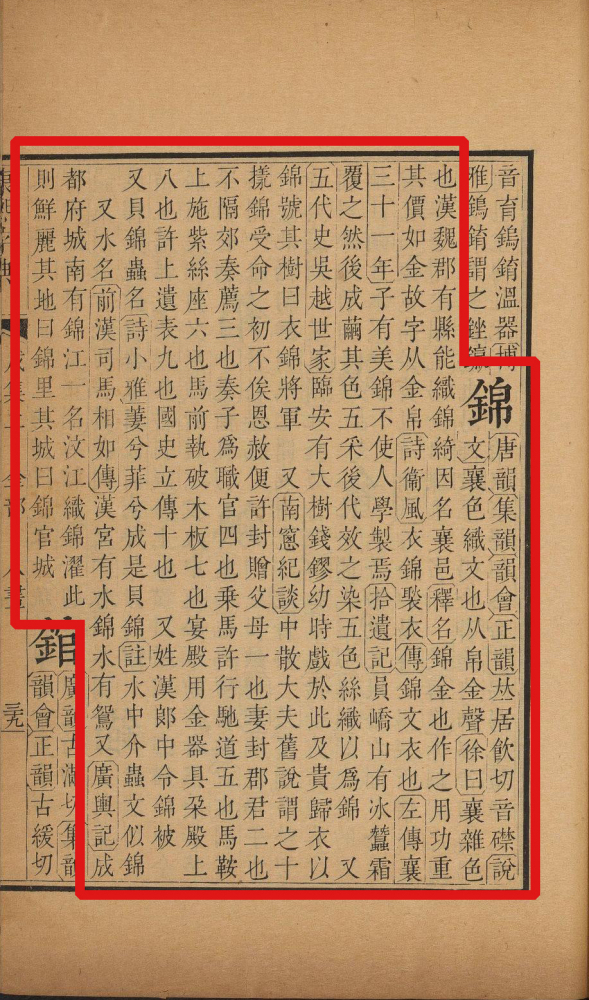 音育鎢錥溫器博
雅鎢錥謂之銼
錦
唐韻集韻韻會正韻𠀤居飮切音襟說
文襄色織文也从帛金聲徐曰襄雜色
也漢魏郡有縣能織錦綺因名襄邑釋名錦金也作之用功重
其價如金故字从金帛詩衞風衣錦褧衣傳錦文衣也左傳襄
三十一年子有美錦不使人學製焉拾遺記員嶠山有冰蠶霜
覆之然後成繭其色五采後代效之染五色絲織以爲錦 又
五代史吳越世家臨安有大樹錢鏐幼時戲於此及貴歸衣以
錦號其樹曰衣錦將軍 又南窻紀談中散大夫舊說謂之十
㨾錦受命之初不俟恩赦便許封贈父母一也妻封郡君二也
不隔郊奏薦三也奏子爲職官四也乘馬許行馳道五也馬鞍
上施紫絲座六也馬前執破木板七也宴殿用金器具朶殿上
八也許上遺表九也國史立傳十也 又姓漢郞中令錦被
又貝錦蟲名詩小雅萋兮菲兮成是貝錦註水中介蟲文似錦
又水名前漢司馬相如傳漢宮有水錦水有鴛又廣輿記成
都府城南有錦江一名汶江織錦濯此
則鮮麗其地曰錦里其城曰錦官城
錧
廣韻古滿切集韻
韻會正韻古緩切
康熙字典 戌集上 金部 八畫 三九